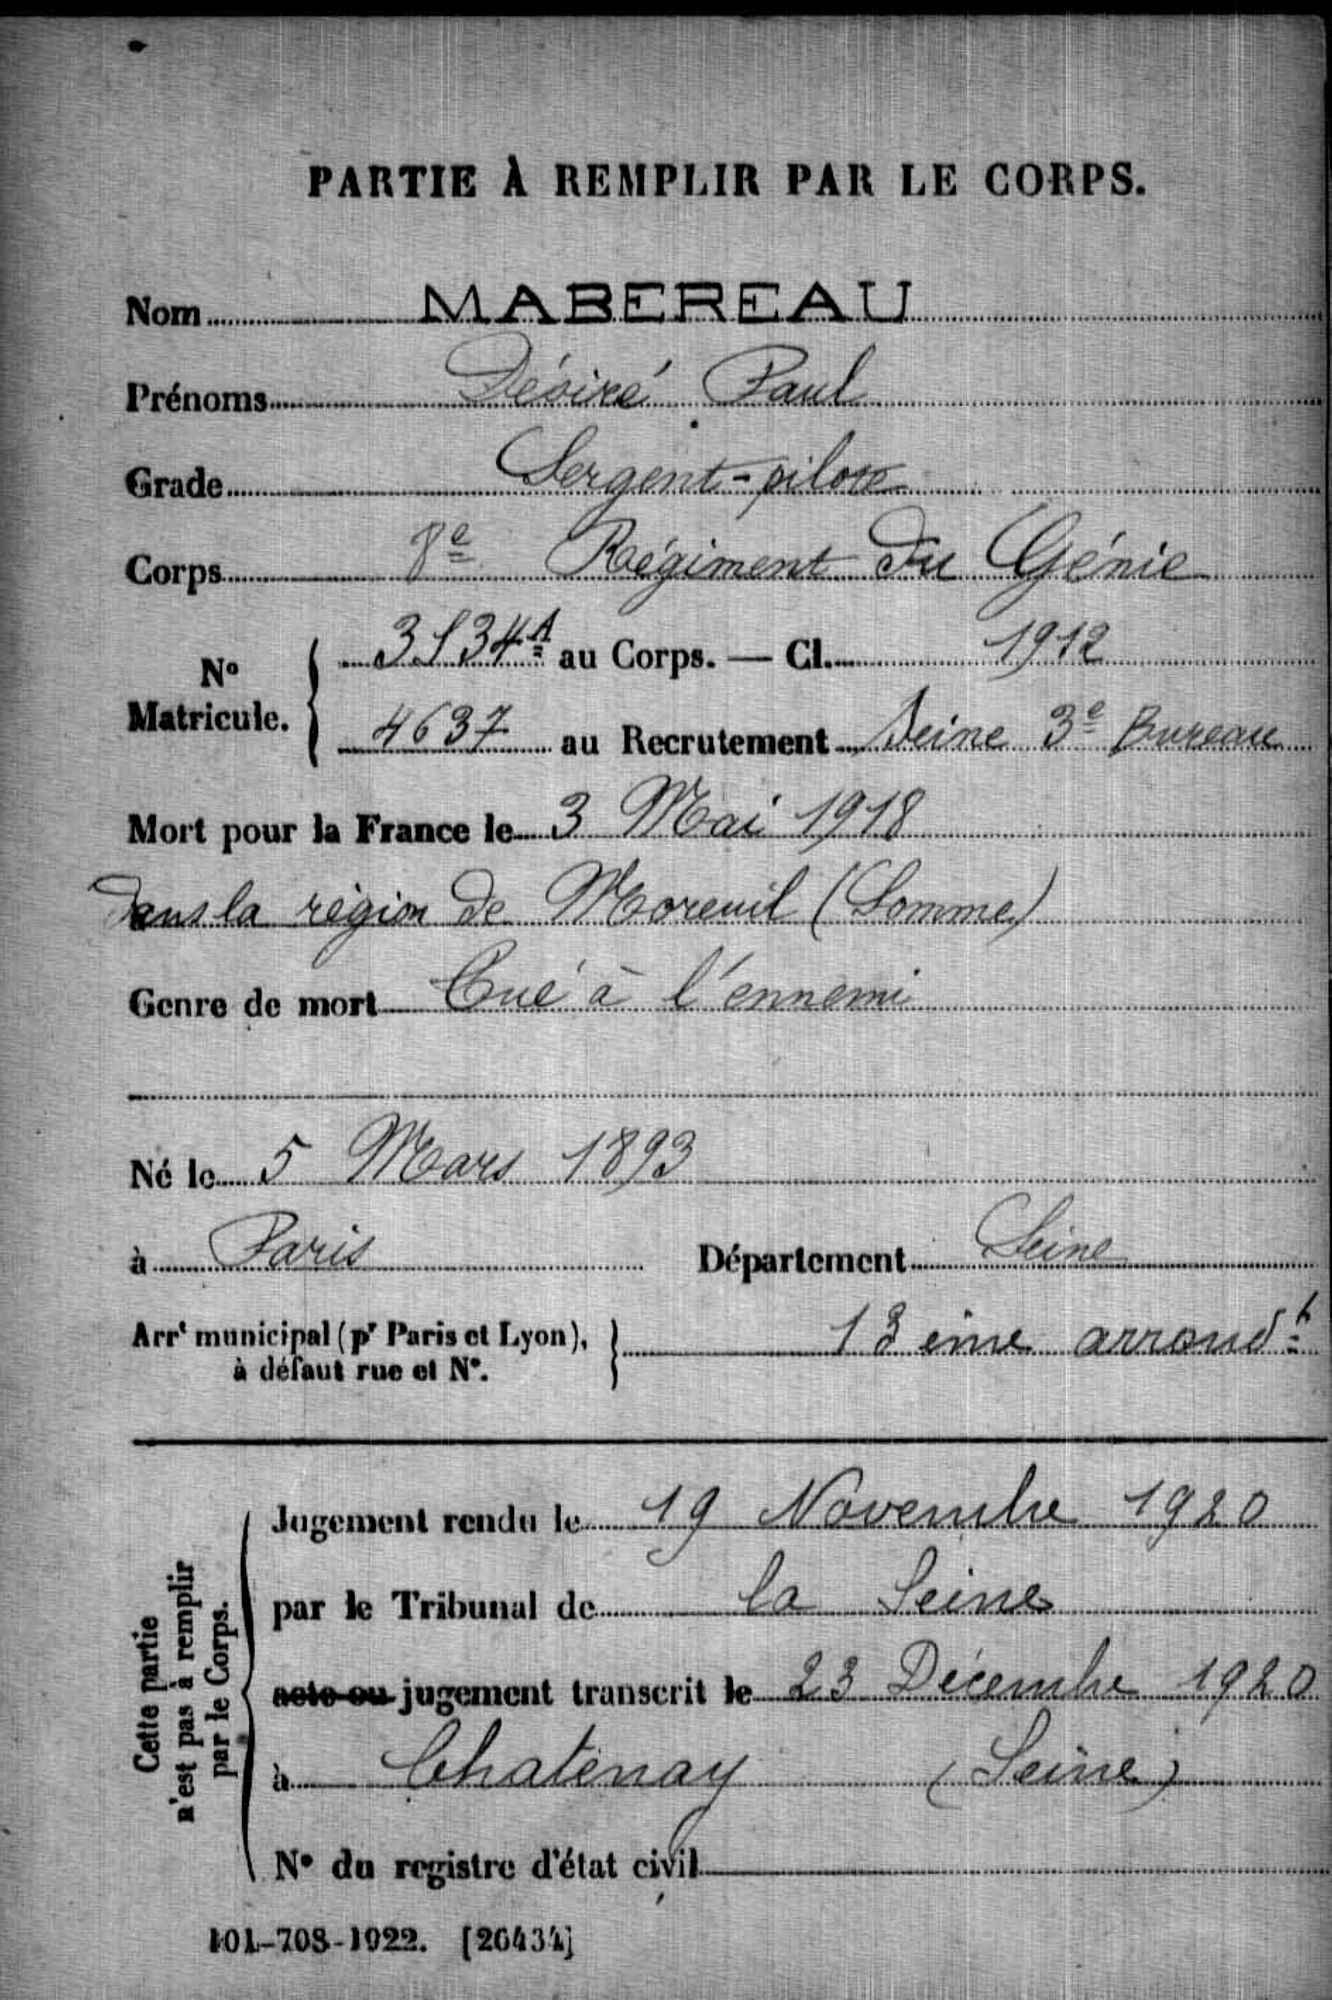 PARTIE À REMPLIR PAR LE CORPS.
Nom MABEREAU
Prénoms Désiré Paul
Grade Sergent-pilote
Corps 8e Régiment du Génie
No Matricule. au Corps. — Cl. 1912
4637 au Recrutement Seine 3e Bureau
Mort pour la France le 3 Mai 1918
dans la région de Moreuil (Somme)
Genre de mort Tué à l'ennemi
Né le 5 Mars 1893
à Paris Département Seine
Arrt municipal (pr Paris et Lyon),
à défaut rue et No. 13 ème arrondt
Cette partie
n'est pas à remplir
par le Corps.
Jugement rendu le 19 Novembre 1920
par le Tribunal de la Seine
acte ou jugement transcrit le 23 Décembre 1920
à Chatenay (Seine)
No du registre d'état civil
101-708-1922. [26434]